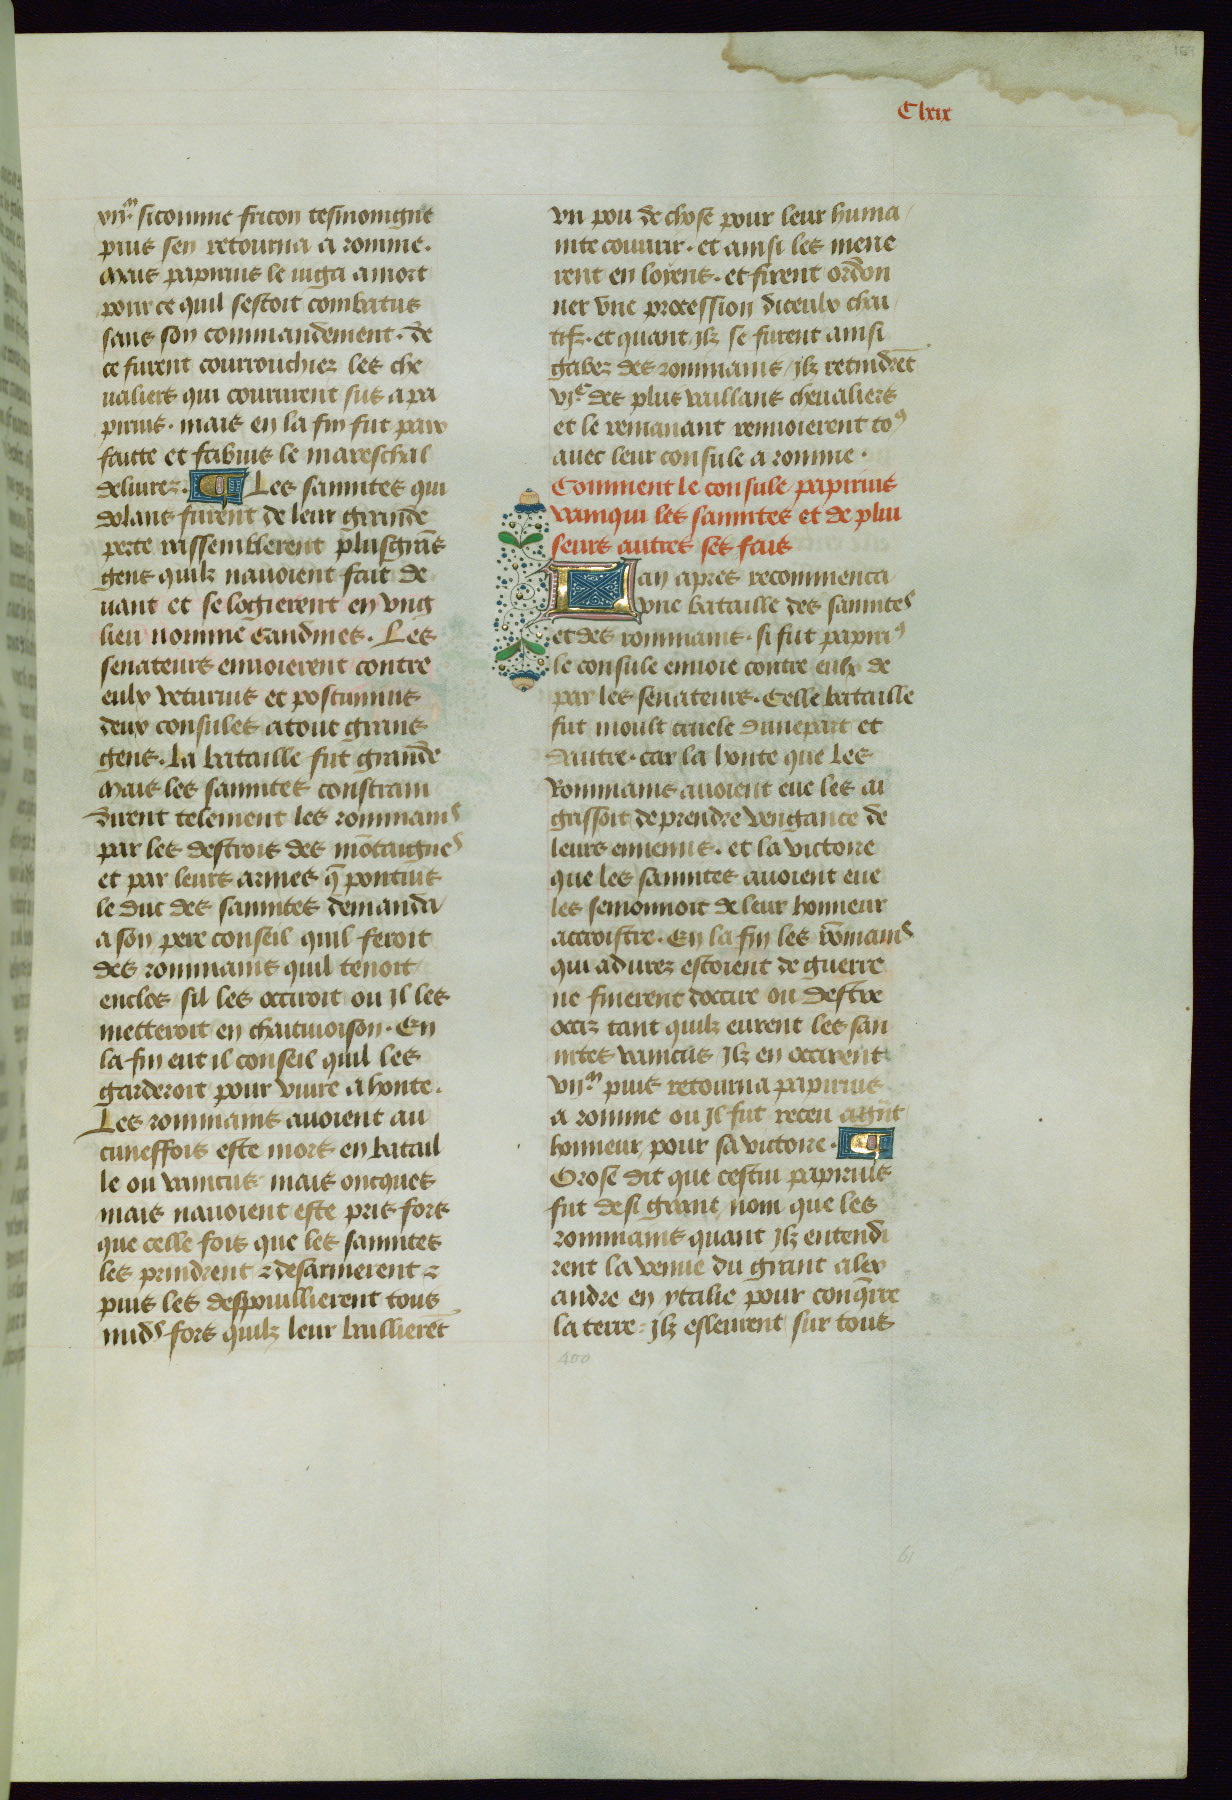 Clxix
viiᵐ. sicomme fricon tesmoingne
puis sen retourna a romme.
Mais papirius le iuga a mort
pour ce quil sestoit combatus
sans son commandement. de
ce furent courrouchiez les che
ualiers qui coururent sus a pa
pirius. mais en la fin fut paix
faitte et fabius le mareschal
deliurez. Les sannites qui
dolans furent de leur grande
perte rassemblerent plus grās
gens quilz nauoient fait de
uant et se logierent en vng
lieu nomme Candines. Les
senateurs enuoierent contre
eulx veturius et postumius
deux consules a tout grans
gens. La bataille fut grande
Mais les sannites constrain
dirent telement les rommains
par les destrois des mōtaignes
et par leurs armes q̄ pontius
le duc des sannites demanda
a son pere conseil quil feroit
des rommains quil tenoit
enclos sil les occiroit ou il les
metteroit en chaitiuoison. En
la fin eut il conseil quil les
garderoit pour viure a honte.
Les rommains auoient au
cuneffois este mors en batail
le ou vaincus mais oncques
mais nauoient este pris fors
que celle fois que les sannites
les prindrent ⁊ desarmerent ⁊
puis les despouillierent tous
nuds fors quilz leur baillierēt
vn pou de chose pour leur huma
nite couurir. et ainsi les mene
rent en loyens. et firent ordon
ner vne procession diceulx chai
tifz. et quant ilz se furent ainsi
gabez des rommains / ilz retindrēt
vjᶜ des plus vaillans cheualiers
et le remanant renuoierent toꝰ
auec leur consule a romme.
Comment le consule papirius
vainqui les sannites et de plui
seurs autres ses fais
Lan apres recommenca
vne bataille des sannites
et des rommains. si fut papiriꝰ
le consule enuoie contre eulx de
par les senateurs. Celle bataille
fut moult cruele dune part et
dautre. car la honte que les
Rommains auoient eue les ai
grissoit de prendre vengance de
leurs ennemis. et la victoire
que les sannites auoient eue
les semonnoit de leur honneur
accroistre. En la fin les rōmains
qui adurez estoient de guerre
ne finerent doccire ou destre
occiz tant quilz eurent les san
nites vaincus / Ilz en occirent
viiᵐ. puis retourna papirius
a romme ou il fut receu a grāt
honneur pour sa victoire.
Orose dit que cestui papirius
fut de si grant nom que les
rommains quant ilz entendi
rent la venue du grant alex
andre en ytalie pour conq̄rre
la terre / ilz esleurent sur tous
400
61